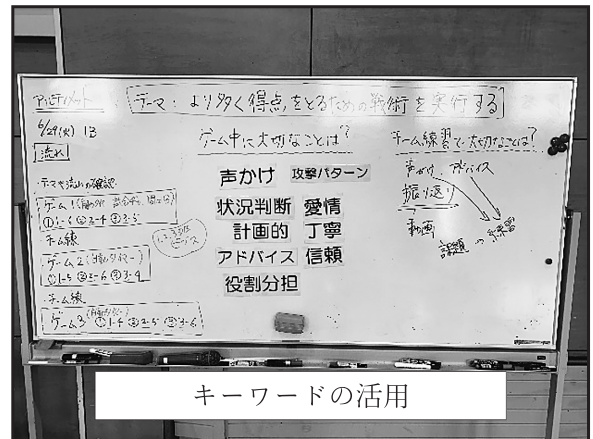 アルティメット
テーマ：より多く得点をとるための戦術を実行する
6/29(火) 1B
流れ
・テーマや流れの確認
ゲーム1
①1-6 ②2-4 ③3-5
・チーム練
ゲーム2
①1-5 ②2-6 ③3-4
・チーム練
ゲーム3
①1-4 ②2-5 ③3-6
ゲーム中に大切なことは?
声かけ 攻撃パターン
状況判断 愛情
計画的 丁寧
アドバイス 信頼
役割分担
チーム練習で大切なことは?
声かけ アドバイス
振り返り
動画
課題 → 練習
キーワードの活用